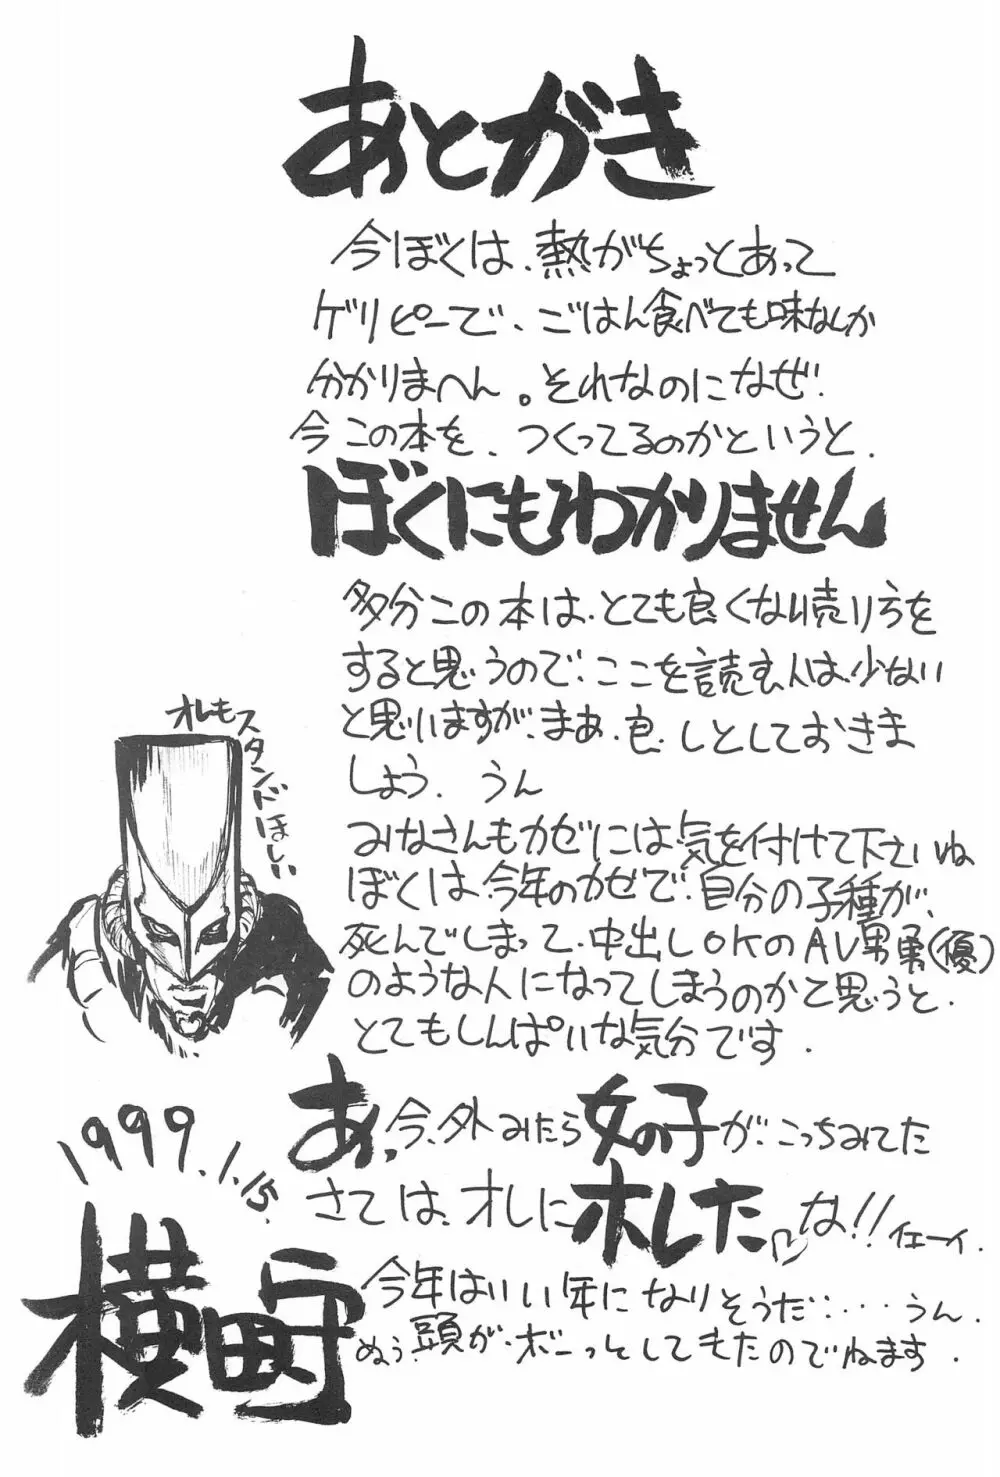 あとがき
今ぼくは、熱がちょっとあって
ゲリピーで、ごはん食べても味なんか
分かりまへん。それなのになぜ、
今この本を、つくってるのかというと、
ぼくにもわかりません
多分この本は、とても良くない売り方を
すると思うので、ここを読む人は少ない
と思いますが、まあ、良しとしておきま
しょう。うん
みなさんもカゼには気を付けて下さいね
ぼくは今年のカゼで、自分の子種が、
死んでしまって、中出しOKのAV男勇(優)
のような人になってしまうのかて思うと、
とてもしんぱいな気分です。
あ、今、外みたら女の子が、こっちみてた
さては、オレにホレたな!!イェーイ。
今年はいい年になりそうだ…うん。
ぬぅ、頭が、ボーっとしてきたのでねます。
オレもスタンドほしい
1999.1.15.
横田守